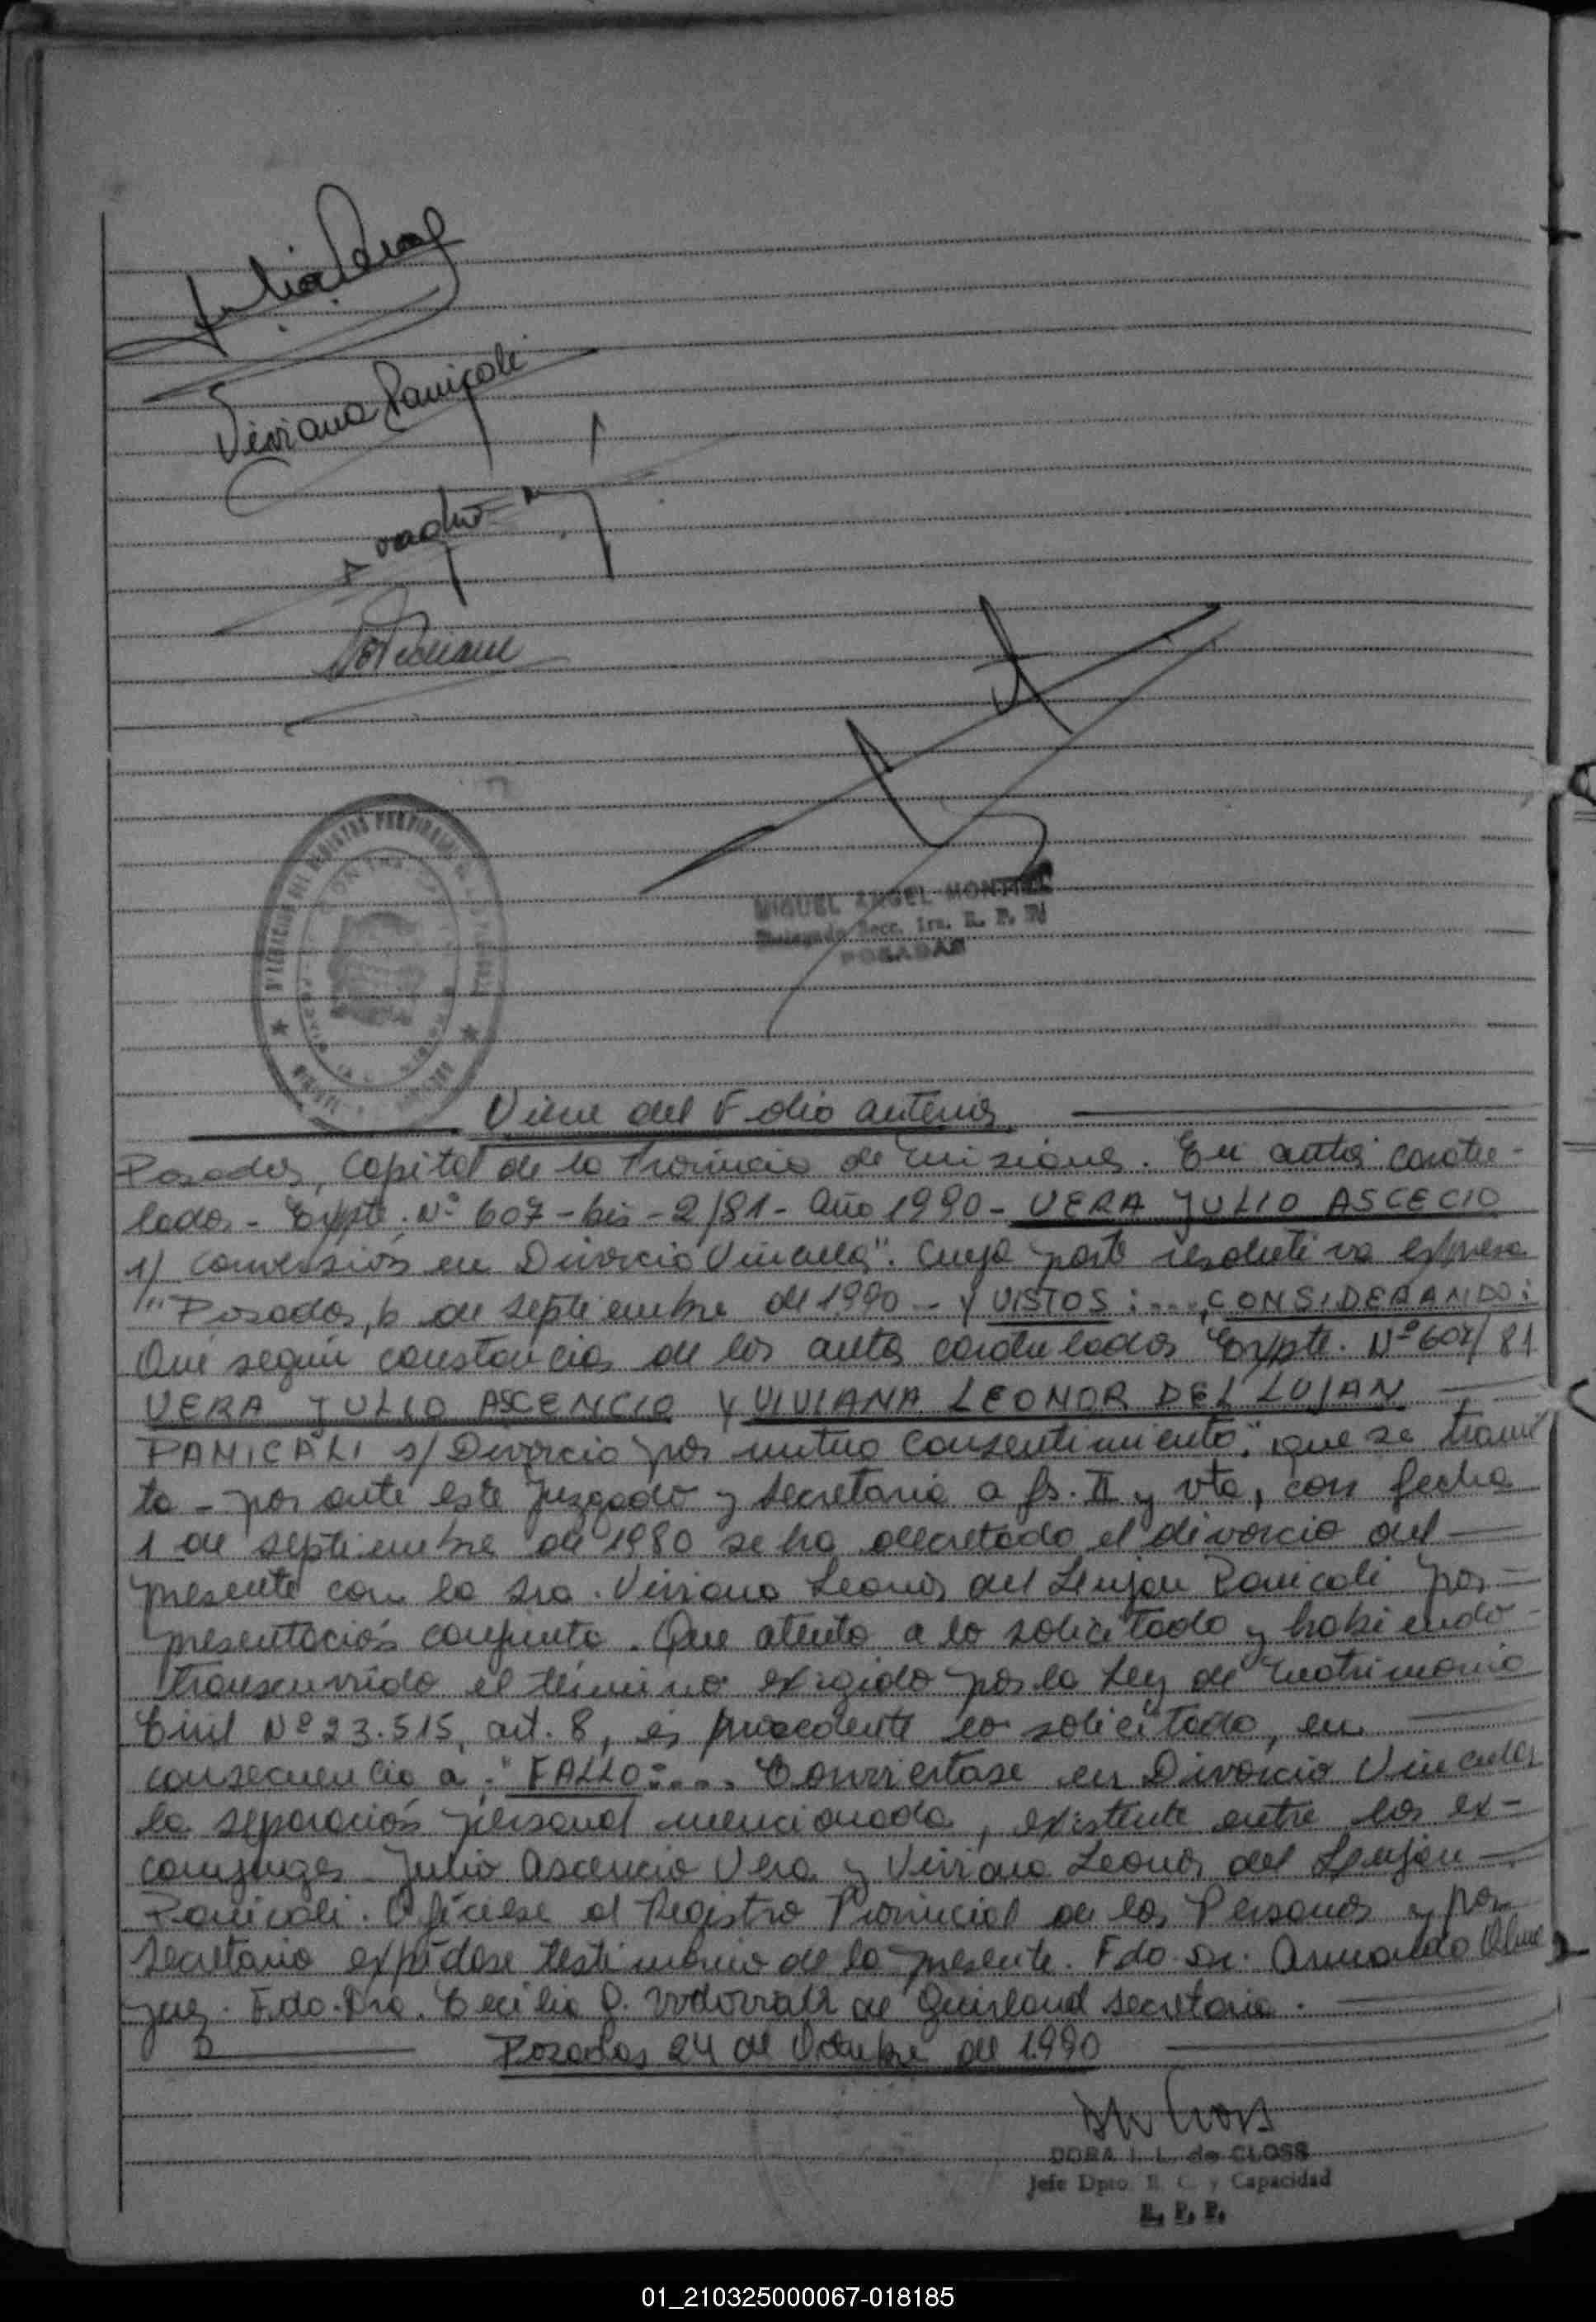 Viviana Panicali
MIGUEL ANGEL MONTIEL
Delegado Secc. 1ra. R. P. P.
POSADAS
Viene del Folio anterior
Posadas, Capital de la Provincia de Misiones. En autos caratu-
lados - Expte. Nº 607 - bis - 2/81 - Año 1990 - VERA JULIO ASCECIO
s/ Conversión en Divorcio Vincular". Cuya parte resolutiva expresa
"Posadas, 6 de septiembre de 1990 - Y VISTOS: ...., CONSIDERANDO:
Que según constancias de los autos caratulados Expte. Nº 607/81
VERA JULIO ASCENCIO Y VIVIANA LEONOR DEL LUJAN
PANICALI s/ Divorcio por mutuo Consentimiento", que se trami
ta - por ante este Juzgado y Secretaria a fs. II y vta, con fecha
1 de septiembre de 1980 se ha decretado el divorcio del
presente con la sra. Viviana Leonor del Lujan Panicali por
presentación conjunta. Que atento a lo solicitado y habiendo
transcurrido el término exigido por la Ley de Matrimonio
Civil Nº 23.515, art. 8, es procedente lo solicitado, en
consecuencia a: "FALLO: .... Conviertase en Divorcio Vincular
la separación personal mencionada, existente entre los ex-
conyuges Julio Ascencio Vera y Viviana Leonor del Lujan
Panicali. Ofíciese al Registro Provincial de las Personas y por
Secretaria expídase testimonio de la presente. Fdo. Dr. Armando
Juez. Fdo. Dra. Cecilia de secretaria.
Posadas 24 de Octubre de 1990
DORA I. L. de CLOSS
Jefe Dpto. E. C. y Capacidad
R. P. P.
01_210325000067-018185